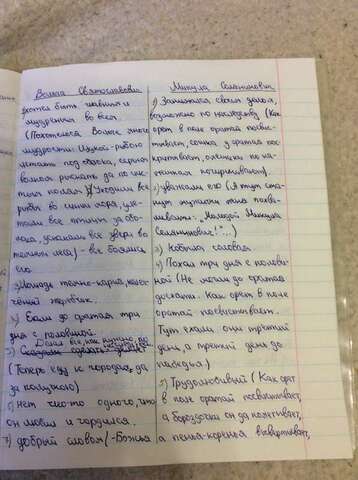 Вольга Святославович
хотел быть главным и
мудреным во всем.
(Похотелося Вольге много
мудрости: Щукой-рыбою
летать под облака, серым
волком рыскать да по чис-
тыим полям. Уходили все
рыбы во синии моря, уле-
тали все птицы за обо-
лока, ускакали все звери во
темныи леса) - все боялись
его.
3) Лошадь темно-карий,
жеребчик.
4) Ехал до оратая три
дня с половиной.
5) Делал все, как нужно
(Теперь еду к городам, да
за получкою)
6) нет чего-то одного, что
он любил и гордился.
7) добрый словом (-Божья
Микула Селянинович
1) Занимался своим делом,
возможно по наследству (Как
орет в поле оратай посвис-
тывает, сошка у оратая пос-
крипывает, омешики по ка-
мешкам почиркивают).
2) уважали его (А тут ста-
нут мужички меня похва-
ливати: "Молодой Микула
Селянинович!"...)
3) Кобыла соловая.
4) Ехал три дня с полови-
ной (Не могли до оратая
доехати. Как орет в поле
оратай посвистывает.
Тут ехали они третий
день, а третий день до
пабедья)
5) Трудолюбивый (Как орат
в поле оратай посвистывает,
а бороздочки он да пометывает,
а пенья-коренья вывертывает,